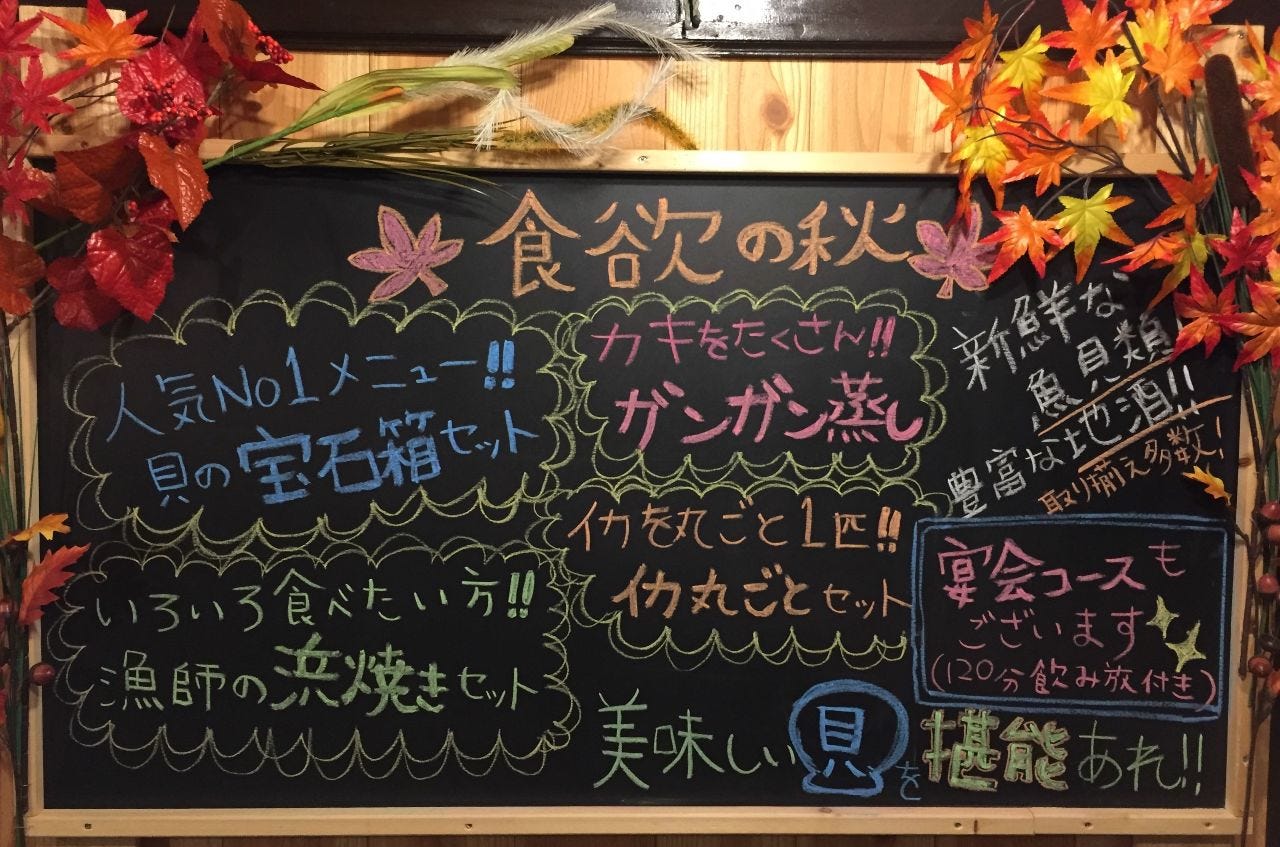 食欲の秋
人気No1メニュー!!
貝の宝石箱セット
カキをたくさん!!
ガンガン蒸し
新鮮な
魚貝類
豊富な地酒!!
取り揃え多数!
いろいろ食べたい方!!
漁師の浜焼きセット
イカを丸ごと1匹!!
イカ丸ごとセット
宴会コースも
ございます
(120分飲み放付き)
美味しい貝を堪能あれ!!